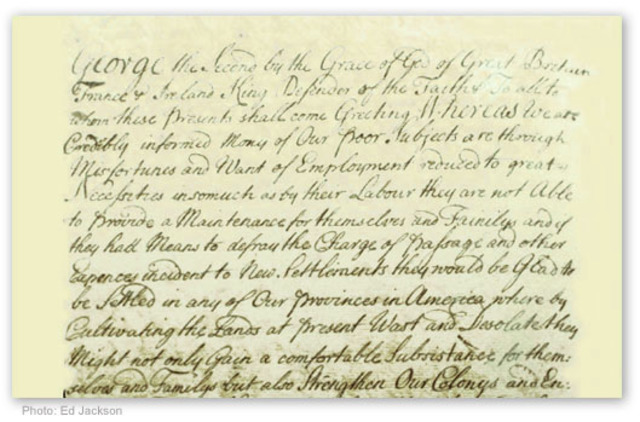 George the Second by the Grace of God of Great Britain
France & Ireland King Defender of the Faith & To all to
whom these Presents shall come Greeting Whereas We are
Credibly informed Mony of Our Poor Subjects are through
Misfortunes and Want of Employment reduced to great
Necessities insomuch as by their Labour they are not Able
to provide a Maintenance for themselves and Familys and if
they had Means to defray the Charge of Passage and other
Expences incident to New Settlements they would be Glad to
be Settled in any of Our Provinces in America where by
Cultivating the Lands at present Wast and Desolate they
Might not only Gain a comfortable Subsistance for them:
selves and Familys but also Strengthen Our Colonys and En:
Photo: Ed Jackson